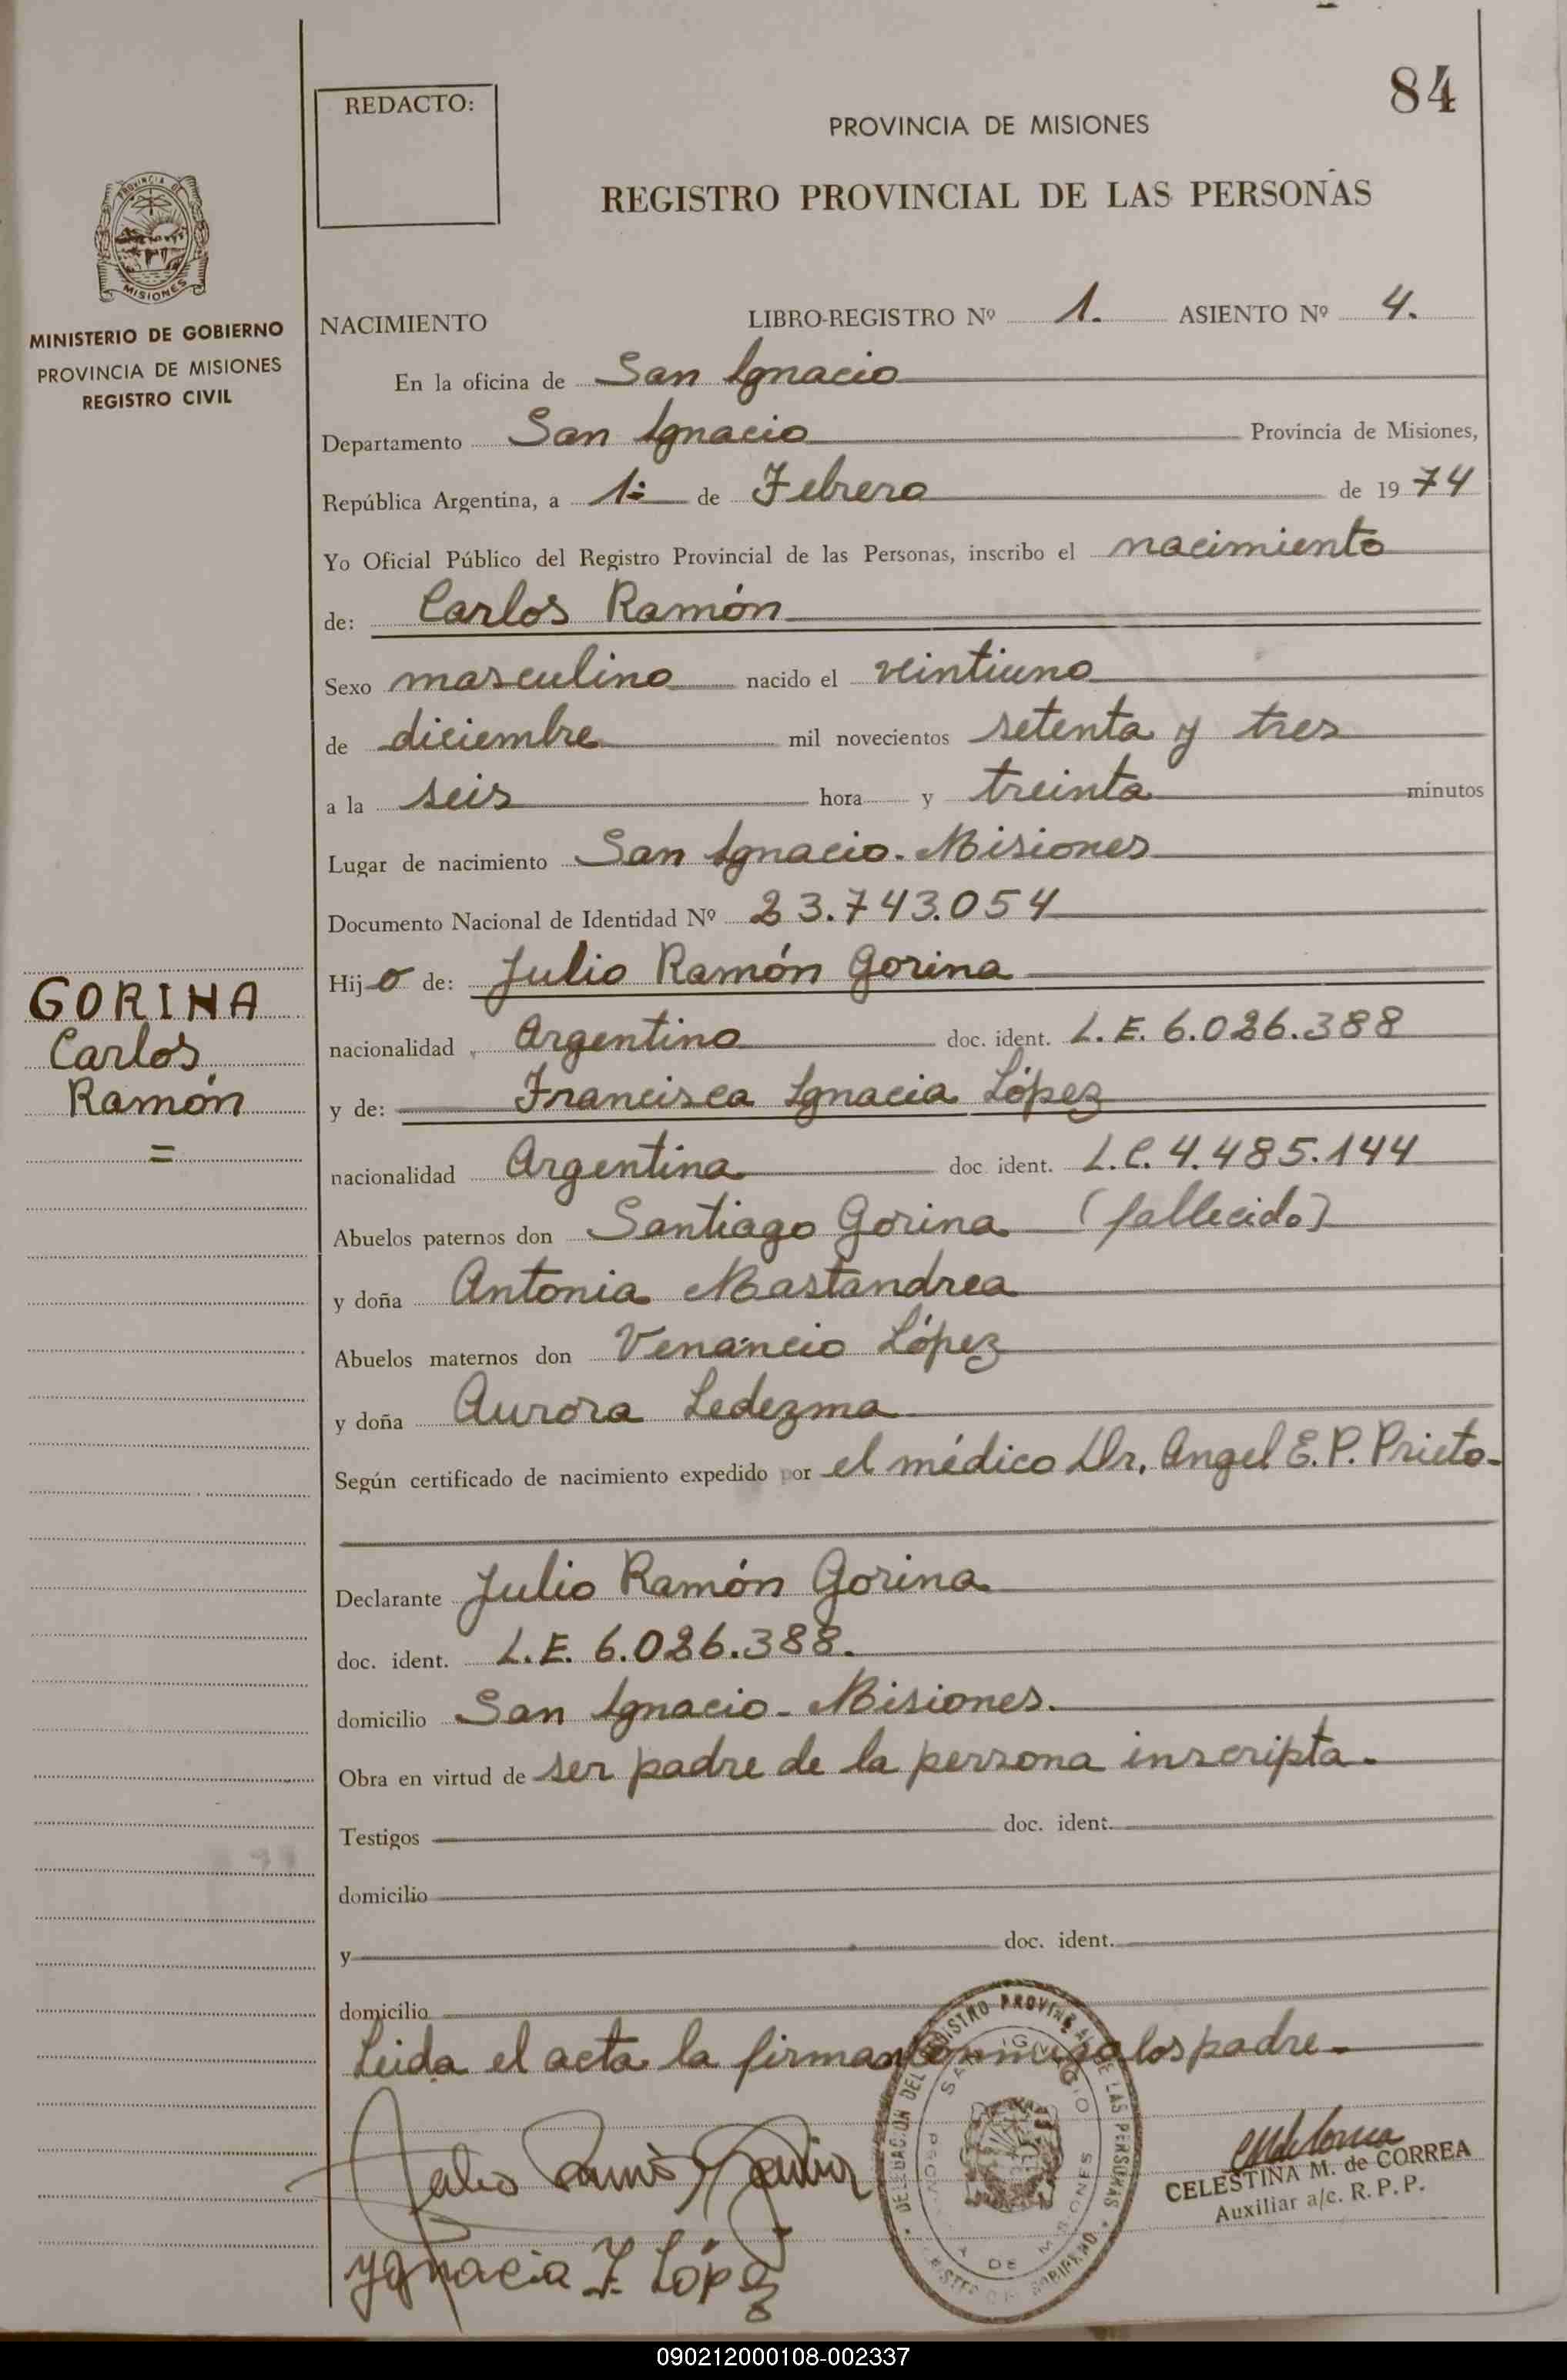 84
REDACTO:
PROVINCIA DE MISIONES
REGISTRO PROVINCIAL DE LAS PERSONAS
PROVINCIA DE
MISIONES
MINISTERIO DE GOBIERNO
PROVINCIA DE MISIONES
REGISTRO CIVIL
NACIMIENTO LIBRO-REGISTRO Nº 1. ASIENTO Nº 4.
En la oficina de San Ignacio
Departamento San Ignacio Provincia de Misiones,
República Argentina, a 1º de Febrero de 1974
Yo Oficial Público del Registro Provincial de las Personas, inscribo el nacimiento
de: Carlos Ramón
Sexo masculino nacido el veintiuno
de diciembre mil novecientos setenta y tres
a la seis hora y treinta minutos
Lugar de nacimiento San Ignacio. Misiones
Documento Nacional de Identidad Nº 23.743.054
Hijo de: Julio Ramón Gorina
nacionalidad Argentino doc. ident. L.E. 6.026.388
y de: Francisca Ignacia López
nacionalidad Argentina doc ident. L.C. 4.485.144
GORINA
Carlos
Ramón
=
Abuelos paternos don Santiago Gorina (fallecido)
y doña Antonia Mastandrea
Abuelos maternos don Venancio López
y doña Aurora Ledezma
Según certificado de nacimiento expedido por el médico Dr. Angel E. P. Prieto-
Declarante Julio Ramón Gorina
doc. ident. L.E. 6.026.388.
domicilio San Ignacio - Misiones.
Obra en virtud de ser padre de la persona inscripta.
Testigos doc. ident.
domicilio
y doc. ident.
domicilio
Leida el acta la firman conmigo los padre.
DELEGACION DEL REGISTRO PROVINCIAL DE LAS PERSONAS
SAN IGNACIO
MISIONES
CELESTINA M. de CORREA
Auxiliar a/c. R. P. P.
Ygnacia F. López
090212000108-002337